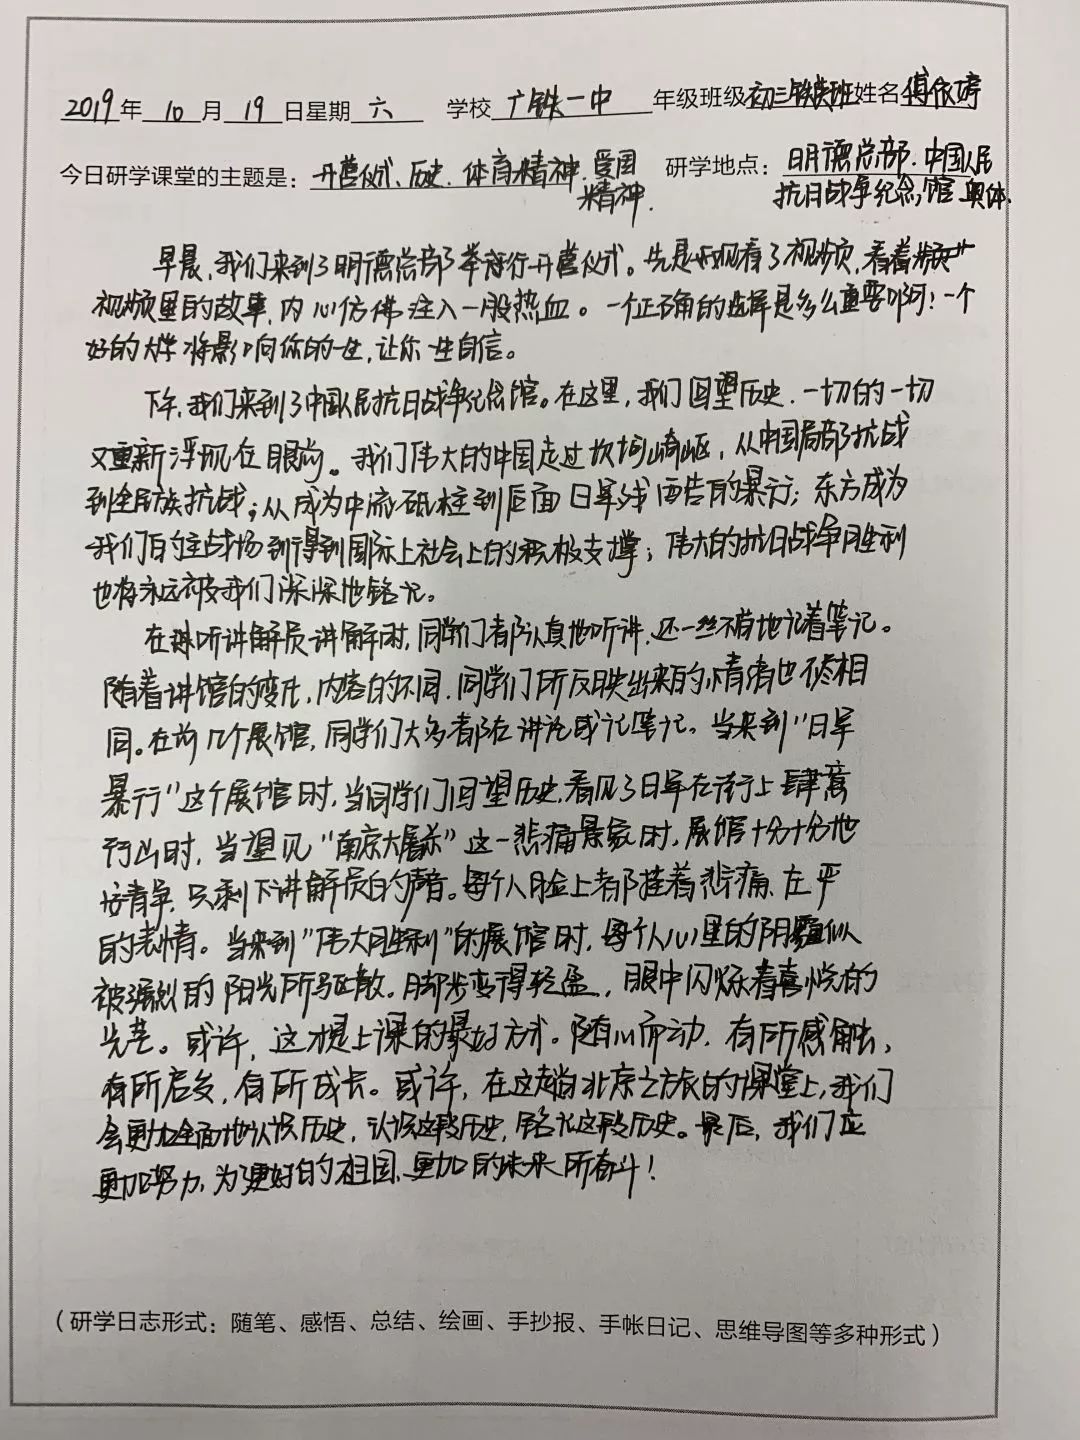 2019年 10 月 19 日星期 六 学校 广铁一中 年级班级初三铁英班姓名傅依婷
今日研学课堂的主题是：开营仪式、历史、体育精神、爱国 研学地点：明德总部、中国人民
精神. 抗日战争纪念馆 奥体.
早晨，我们来到了明德总部举行开营仪式。先是观看了视频，看着
视频里的故事，内心仿佛注入一股热血。一个正确的选择是多么重要啊！一个
好的大学将影响你的一生，让你一生自信。
下午，我们来到了中国人民抗日战争纪念馆。在这里，我们回望历史，一切的一切
又重新浮现在眼前。我们伟大的中国走过坎坷崎岖，从中国局部抗战
到全民族抗战；从成为中流砥柱到后面日军残酷的暴行；东方成为
我们的主战场到得到国际上社会上的积极支撑；伟大的抗日战争胜利
也将永远被我们深深地铭记。
在听讲解员讲解时，同学们都认真地听讲，还一丝不苟地记着笔记。
随着讲馆的变化，内容的不同，同学们所反映出来的情绪也不尽相
同。在前几个展馆，同学们大多都在讨论或记笔记。当来到"日军
暴行"这个展馆时，当同学们回望历史，看见了日军在街上肆意
行凶时，当望见"南京大屠杀"这一悲痛景象时，展馆十分十分地
安静，只剩下讲解员的声音。每个人脸上都挂着悲痛、庄严
的表情。当来到"伟大胜利"的展馆时，每个人心里的阴霾似
被强烈的阳光所驱散，脚步变得轻盈，眼中闪烁着喜悦的
光芒。或许，这才是上课的最好方式。随心而动，有所感触，
有所启发，有所成长。或许，在这趟北京之旅的课堂上，我们
会更加全面地认识历史，认识这段历史，铭记这段历史。最后，我们应
更加努力，为了更好的祖国，更加的未来所奋斗！
（研学日志形式：随笔、感悟、总结、绘画、手抄报、手帐日记、思维导图等多种形式）